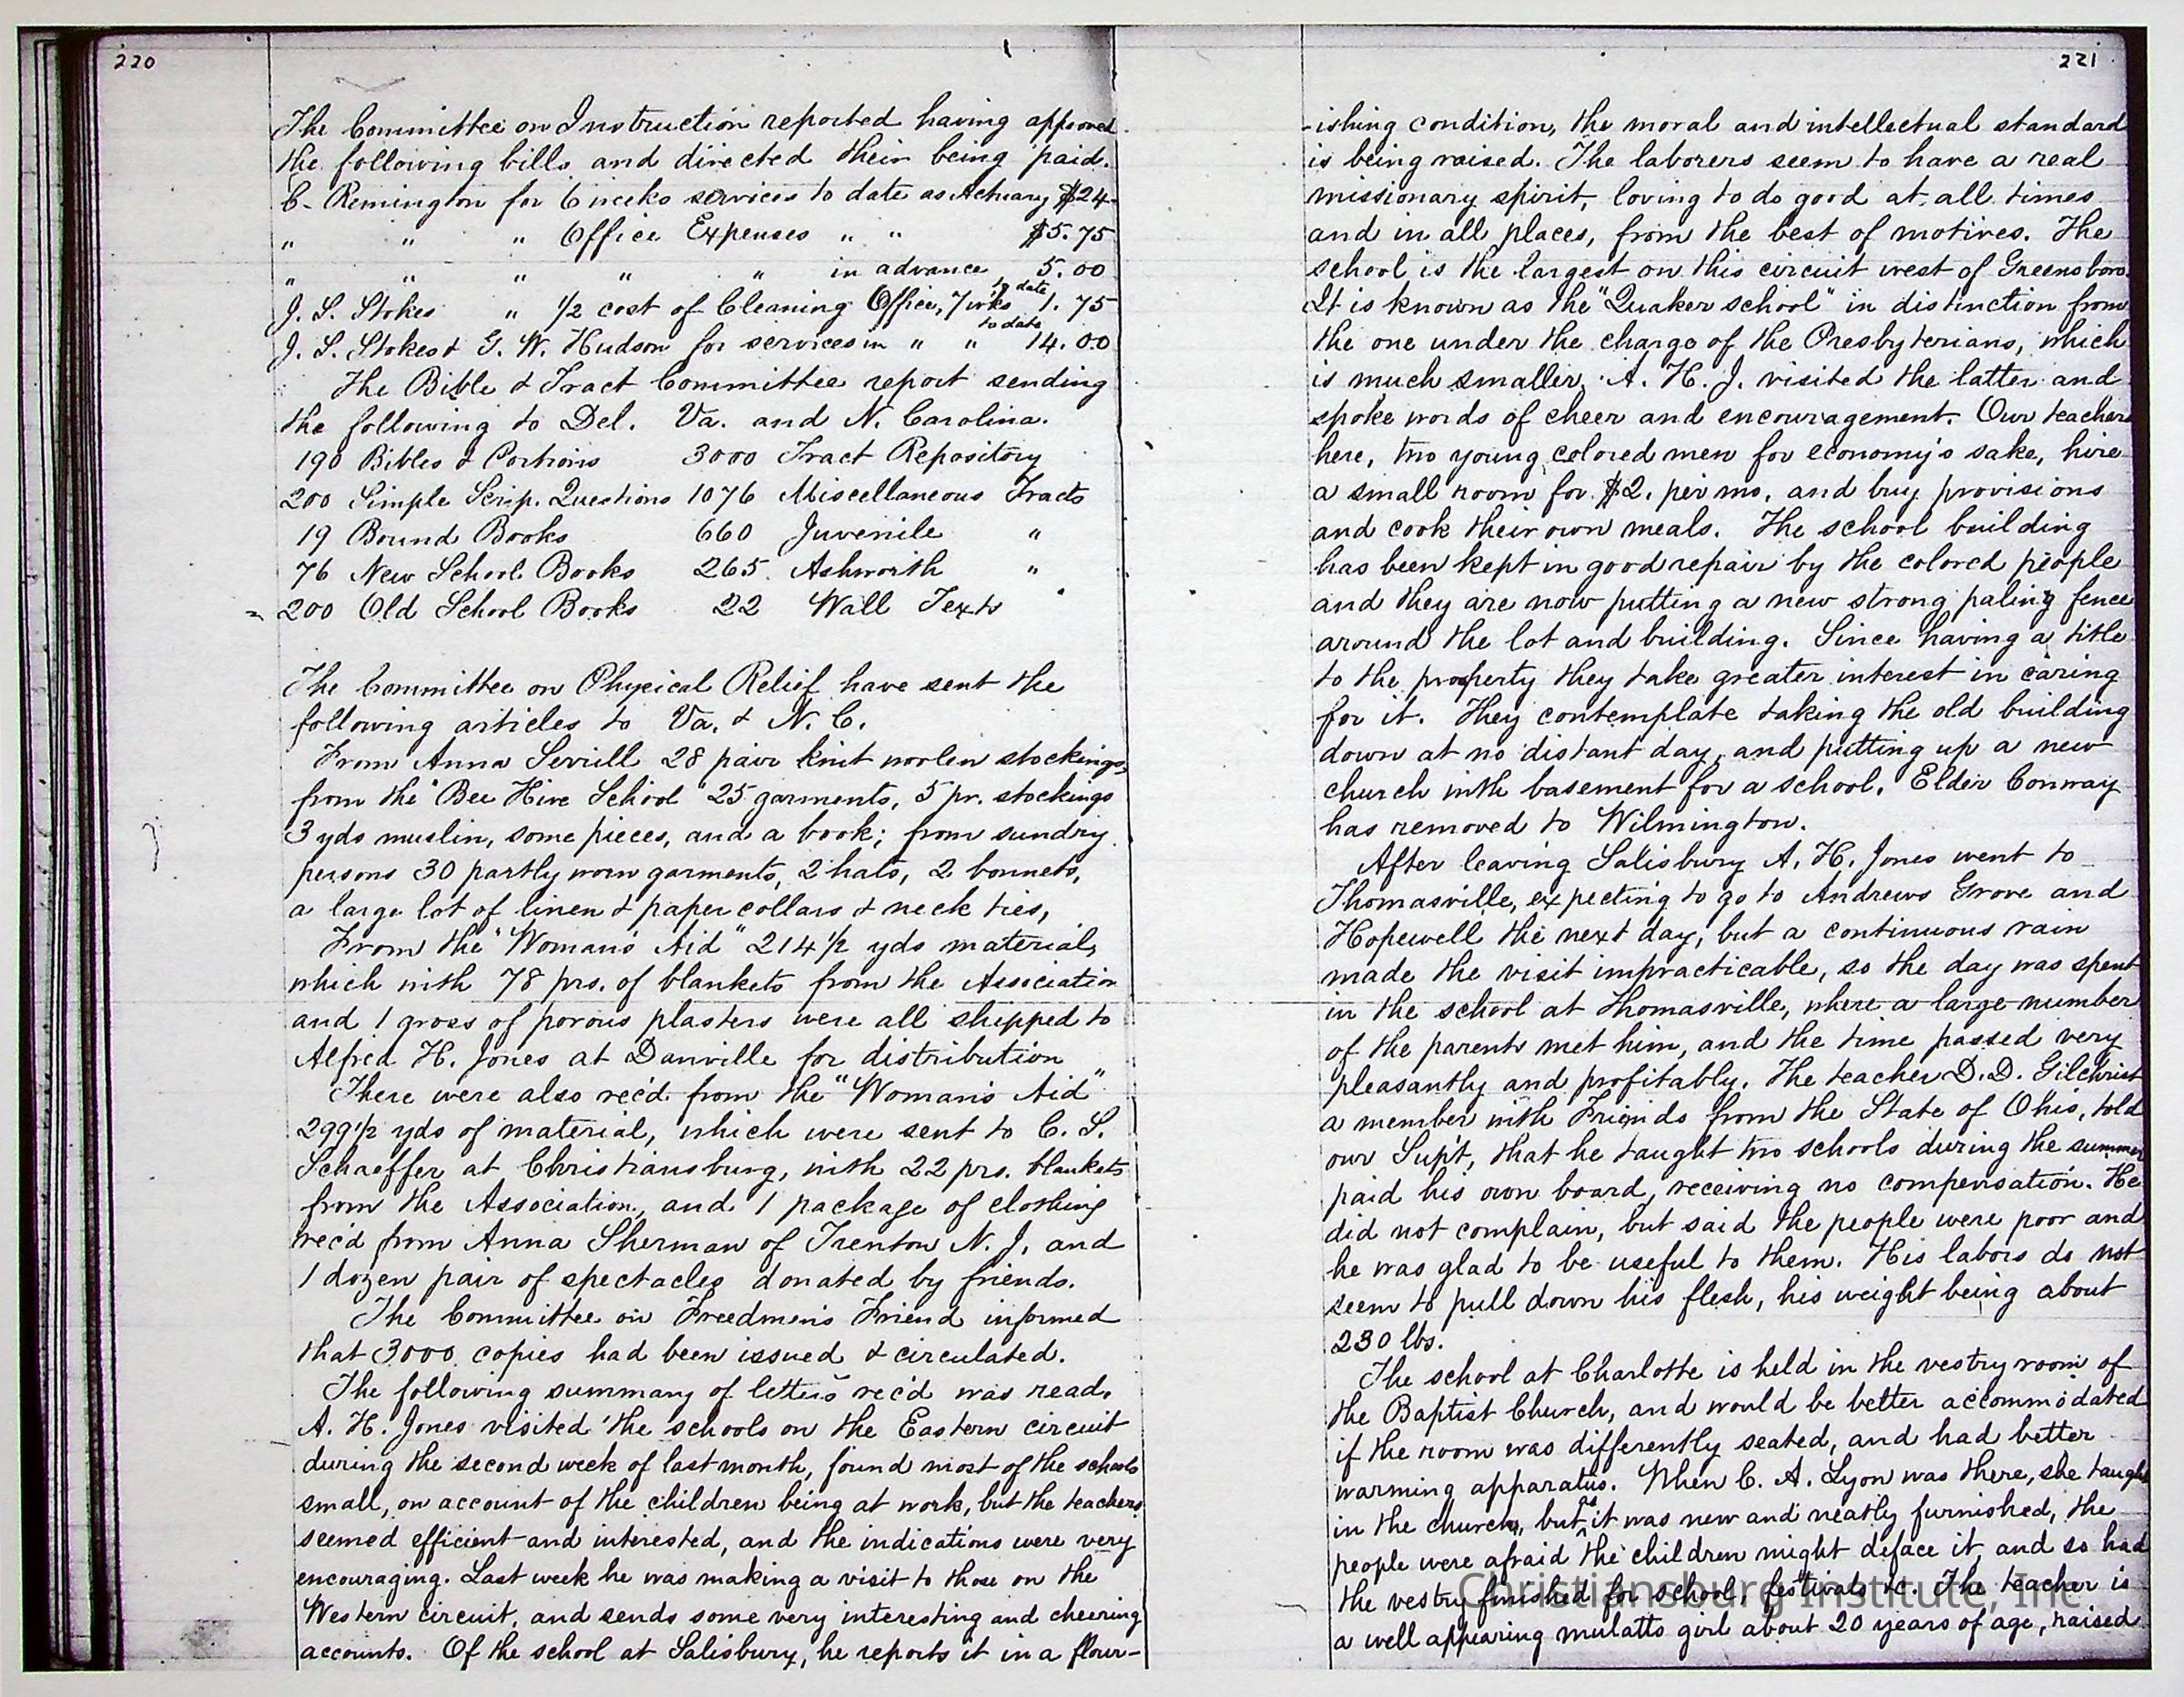 220
The Committee on Instruction reported having approved
the following bills and directed their being paid.
C. Remington for 6 weeks services to date as Actuary $24-
" " " Office Expenses " " $5.75
" " " " " in advance 5.00
J. S. Stokes " 1/2 cost of Cleaning Office, 7 wks to date 1.75
J. S. Stokes & G. W. Hudson for services in " " to date 14.00
The Bible & Tract Committee report sending
the following to Del. Va. and N. Carolina.
190 Bibles & Portions 3000 Tract Repository
200 Simple Scrip. Questions 1076 Miscellaneous Tracts
19 Bound Books 660 Juvenile "
76 New School Books 265 Ashworth "
200 Old School Books 22 Wall Texts
The Committee on Physical Relief have sent the
following articles to Va. & N. C.
From Anna Sevill 28 pair knit woolen stockings,
from the "Bee Hive School" 25 garments, 5 pr. stockings
3 yds muslin, some pieces, and a book; from sundry
persons 30 partly worn garments, 2 hats, 2 bonnets,
a large lot of linen & paper collars & neck ties,
From the "Woman's Aid" 214 1/2 yds material,
which with 78 prs. of blankets from the Association
and 1 gross of porous plasters were all shipped to
Alfred H. Jones at Danville for distribution
There were also rec'd from the "Woman's Aid"
299 1/2 yds of material, which were sent to C. S.
Schaeffer at Christiansburg, with 22 prs. blankets
from the Association, and 1 package of clothing
rec'd from Anna Sherman of Trenton N. J. and
1 dozen pair of spectacles donated by friends.
The Committee on Freedmen's Friend informed
that 3000 copies had been issued & circulated.
The following summary of letters rec'd was read.
A. H. Jones visited the schools on the Eastern circuit
during the second week of last month, found most of the schools
small, on account of the children being at work, but the teachers
seemed efficient and interested, and the indications were very
encouraging. Last week he was making a visit to those on the
Western circuit, and sends some very interesting and cheering
accounts. Of the school at Salisbury, he reports it in a flour-
221
-ishing condition, the moral and intellectual standard
is being raised. The laborers seem to have a real
missionary spirit, loving to do good at all times
and in all places, from the best of motives. The
school is the largest on this circuit west of Greensboro.
It is known as the "Quaker school" in distinction from
the one under the charge of the Presbyterians, which
is much smaller. A. H. J. visited the latter and
spoke words of cheer and encouragement. Our teachers
here, two young colored men for economy's sake, hire
a small room for $2. per mo. and buy provisions
and cook their own meals. The school building
has been kept in good repair by the colored people
and they are now putting a new strong paling fence
around the lot and building. Since having a title
to the property they take greater interest in caring
for it. They contemplate taking the old building
down at no distant day, and putting up a new
church with basement for a school. Elder Conway
has removed to Wilmington.
After leaving Salisbury A. H. Jones went to
Thomasville, expecting to go to Andrews Grove and
Hopewell the next day, but a continuous rain
made the visit impracticable, so the day was spent
in the school at Thomasville, where a large number
of the parents met him, and the time passed very
pleasantly and profitably. The teacher D. D. Gilchrist
a member with Friends from the State of Ohio, told
our Sup't, that he taught two schools during the summer
paid his own board, receiving no compensation. He
did not complain, but said the people were poor and
he was glad to be useful to them. His labors do not
seem to pull down his flesh, his weight being about
230 lbs.
The school at Charlotte is held in the vestry room of
the Baptist Church, and would be better accommodated
if the room was differently seated, and had better
warming apparatus. When C. A. Lyon was there, she taught
in the church, but as it was new and neatly furnished, the
people were afraid the children might deface it, and so had
the vestry finished for school, festivals &c. The teacher is
a well appearing mulatto girl about 20 years of age, raised
Christiansburg Institute, Inc